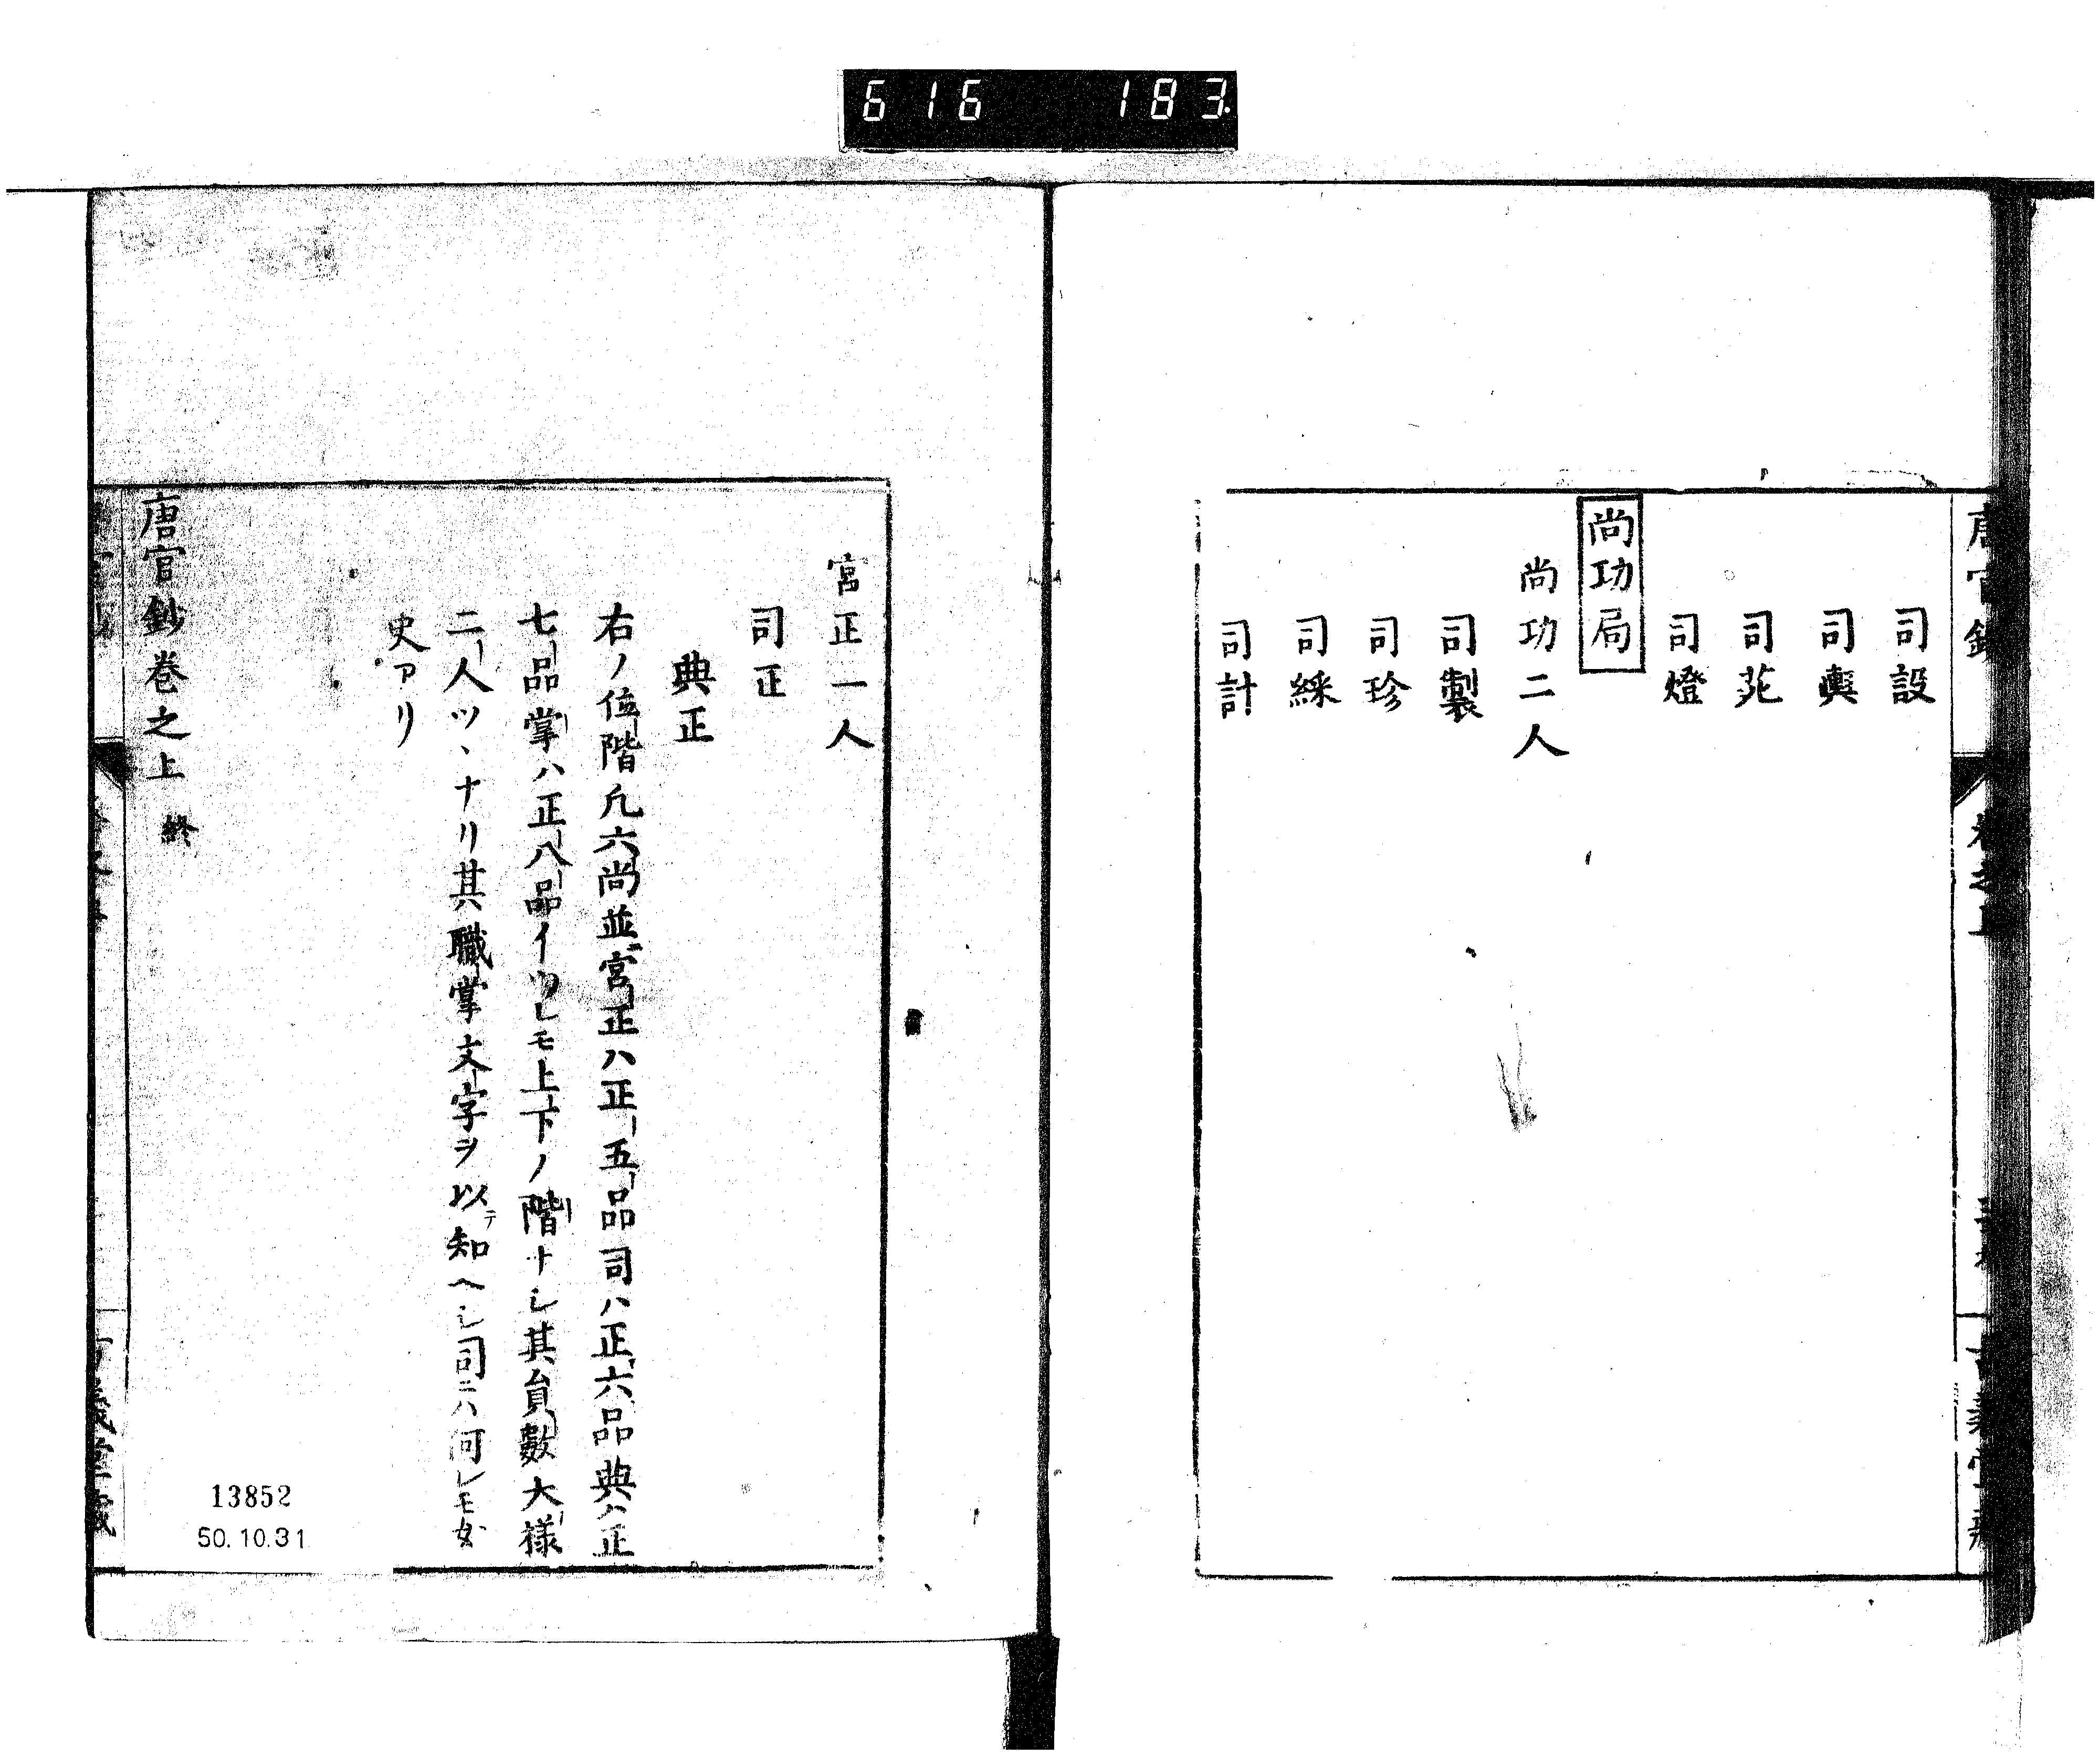 616 183
司設
司輿
司苑
司燈
尚功局
尚功二人
司製
司珍
司綵
司計
宮正一人
司正
典正
右ノ位階凡六尚並宮正ハ正五品司ハ正六品典ハ正
七品掌ハ正八品イツレモ上下ノ階ナシ其員數大様
二人ツヽナリ其職掌文字ヲ以テ知ヘシ司ニハ何レモ女
史アリ
唐官鈔巻之上 終
13852
50.10.31